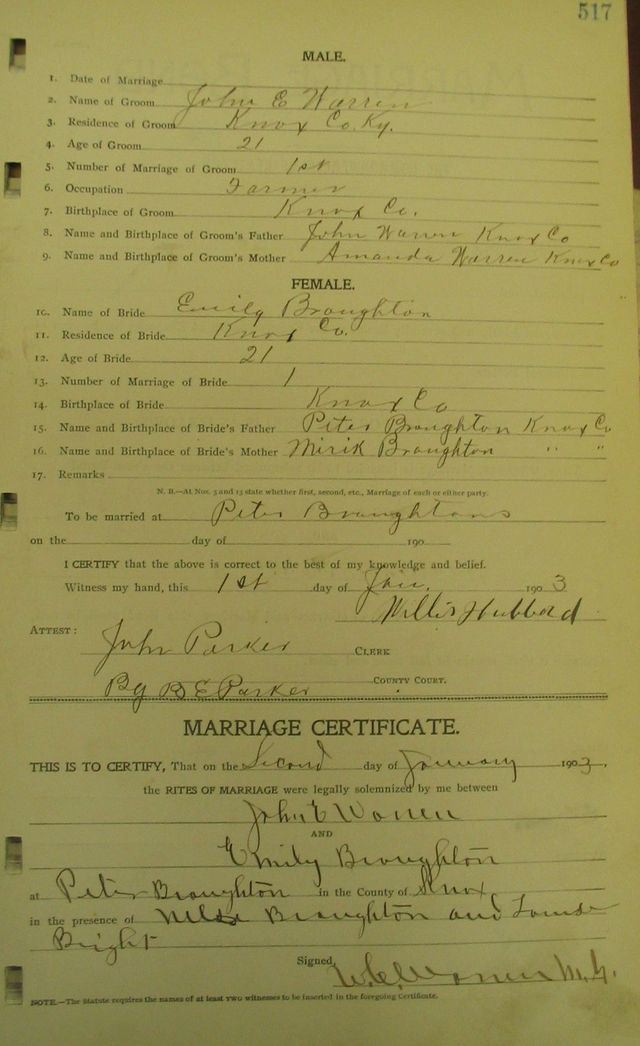 517
MALE.
1. Date of Marriage
2. Name of Groom John E Warren
3. Residence of Groom Knox Co, Ky.
4. Age of Groom 21
5. Number of Marriage of Groom 1st
6. Occupation Farmer
7. Birthplace of Groom Knox Co.
8. Name and Birthplace of Groom's Father John Warren Knox Co
9. Name and Birthplace of Groom's Mother Amanda Warren Knox Co
FEMALE.
10. Name of Bride Emily Broughton
11. Residence of Bride Knox Co.
12. Age of Bride 21
13. Number of Marriage of Bride 1
14. Birthplace of Bride Knox Co
15. Name and Birthplace of Bride's Father Peter Broughton Knox Co
16. Name and Birthplace of Bride's Mother Broughton " "
17. Remarks
N. B.—At Nos. 5 and 13 state whether first, second, etc., Marriage of each or either party.
To be married at Peter Broughtons
on the day of 190
I CERTIFY that the above is correct to the best of my knowledge and belief.
Witness my hand, this 1st day of Jan. 1903
Willis Hubbard
ATTEST:
John Parker CLERK
By B E Parker COUNTY COURT.
MARRIAGE CERTIFICATE.
THIS IS TO CERTIFY, That on the Second day of January 1903,
the RITES OF MARRIAGE were legally solemnized by me between
John E Warren
AND
Emily Broughton
at Peter Broughton in the County of Knox
in the presence of Broughton and
Bright
Signed, Warren M. G.
NOTE.—The Statute requires the names of at least TWO witnesses to be inserted in the foregoing Certificate.